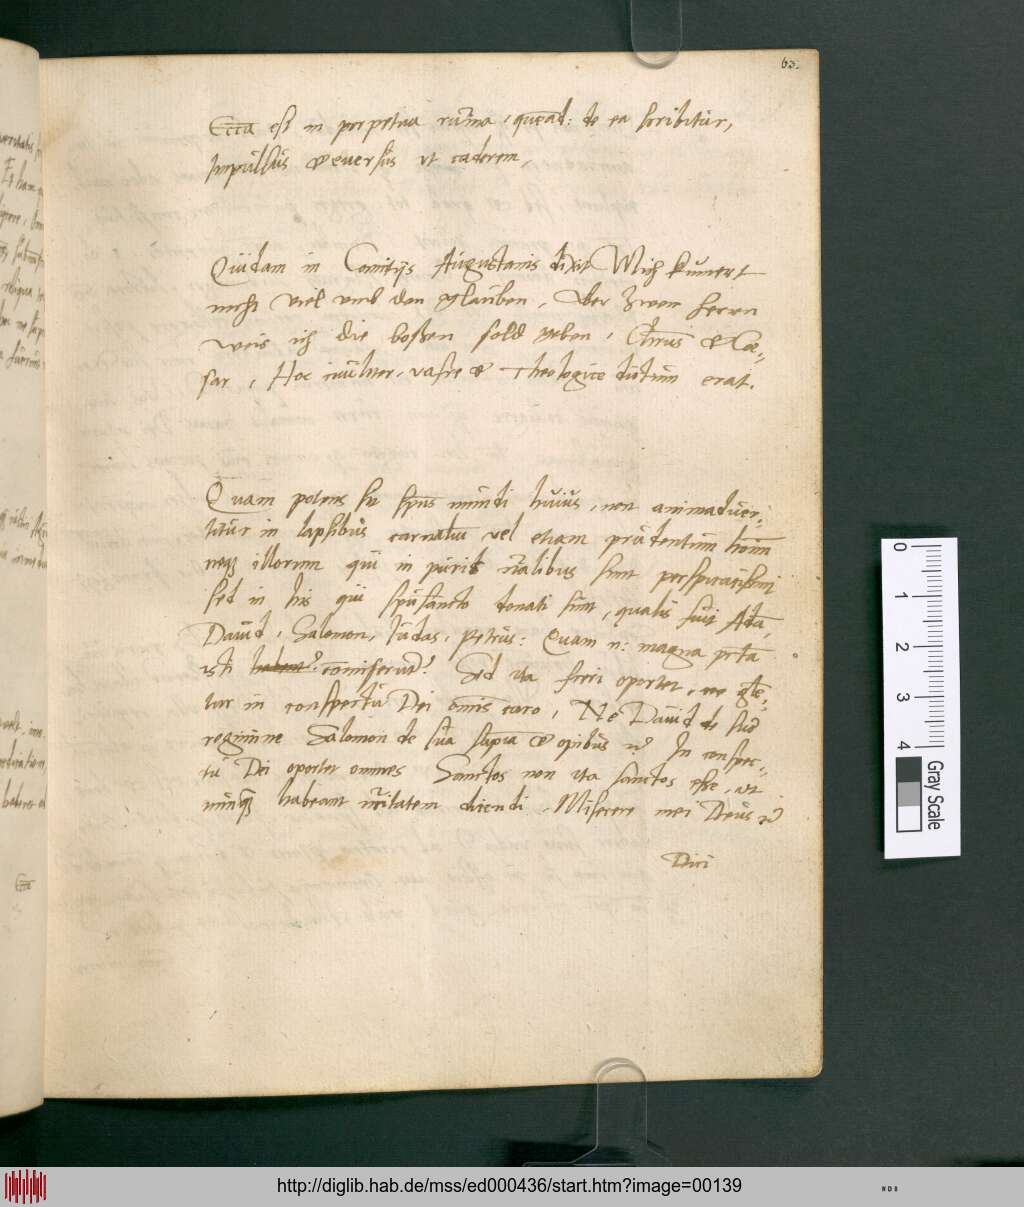 63.
Eccā est in perpetua ruina, quēad: de ea scribitur,
Impulsus & eversus ut caderem,
Quidam in Comitijs Augustanis dixit Mich kumert
nicht viel umb den glauben, Aber Zwen herrn
weis ich die boßen sold geben, Chrūs & Cae-
sar, Hoc , vafre & Theologice dictum erat.
Quam potens sit spūs mundi huius, non animadver-
titur in lapsibus carnaliū vel etiam prudentium homīm
neq illorum qui in puris nālibus sunt perspicacissimi
sed in his qui spūsancto donati sunt, qualis fuit Adā,
Dauid, Salomon, Iudas, Petrus: Quam n: magna pctā
isti habent? comiserūt? Sed ita fieri oportet, ne gle-
tur in conspectu Dei omīs caro, Ne Dauid de suo
regimine Salomon de sua sapīa & opibus In conspec-
tu Dei oportet omnes Sanctos non ita sanctos esse, ut
nunq habeant ncitatem dicendi, Miserere mei Deus
Dici
Eccā
0
1
2
3
4
Gray Scale
http://diglib.hab.de/mss/ed000436/start.htm?image=00139